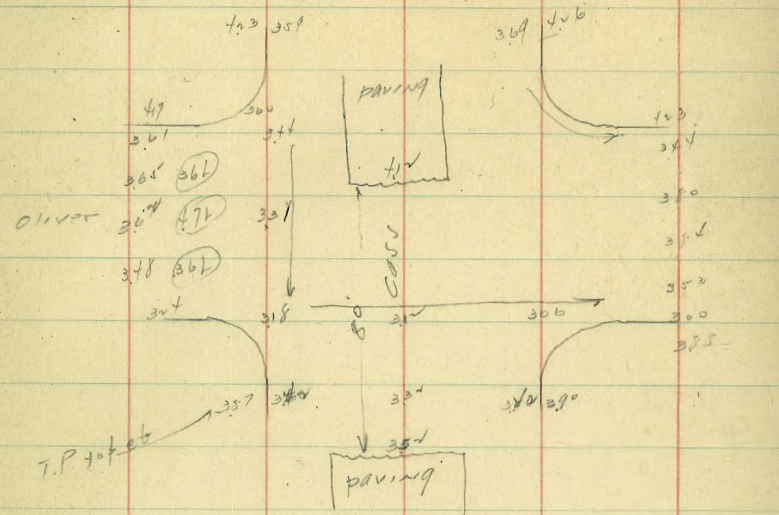 423 359
369 426
paving
49
360
423
361
344
344
412
365 361
380
Oliver
362 471
331
384
Cass
348 361
352
324
318
80
312
306
300
388
357
332
390
T.P top cb
352
paving